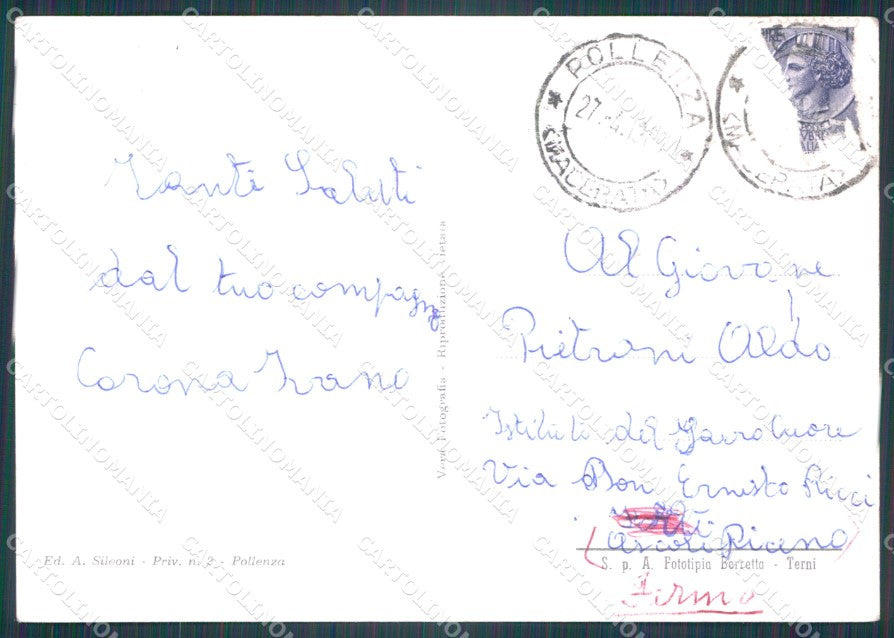 Tanti Saluti
dal tuo compagno
Corona Ivano
Ed. A. Sileoni - Priv. n. 2 - Pollenza
Vera Fotografia - Riproduzione vietata
POLLENZA
27
(MACERATA)
Al Giovane
Pietroni Aldo
Istituto del Sacro Cuore
Via Don Ernesto Ricci
Ascoli Piceno
S. p. A. Fototipia Berzetta - Terni
Fermo
CARTOLINOMANIA